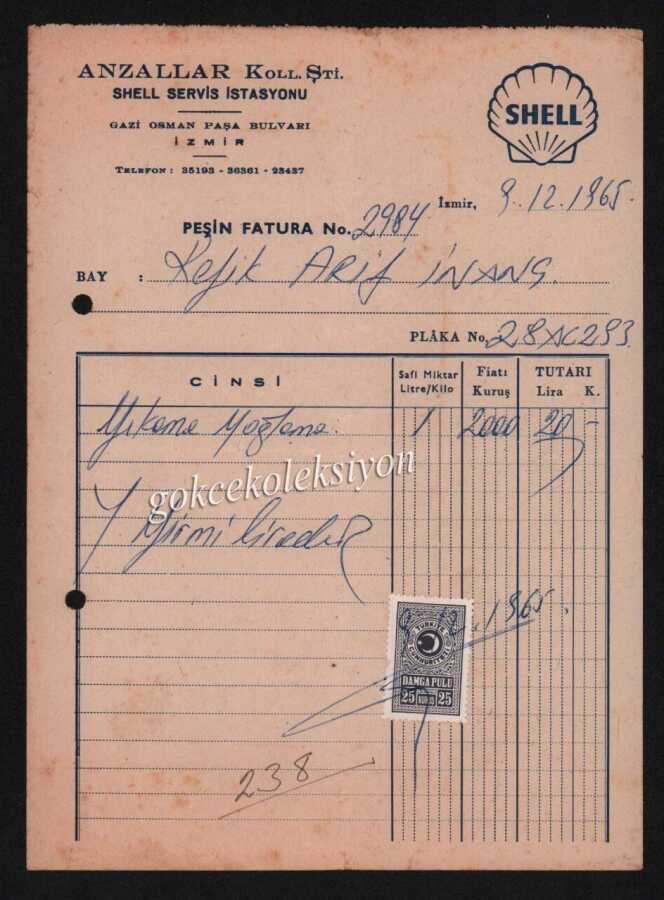 ANZALLAR KOLL. ŞTİ.
SHELL SERVİS İSTASYONU
GAZİ OSMAN PAŞA BULVARI
İZMİR
TELEFON : 35193 - 36361 - 23437
SHELL
İzmir, 9.12.1965.
PEŞİN FATURA No. 2984
BAY : Refik Arif İNANÇ.
PLÂKA No. 28 AC 293
CİNSİ
Safi Miktar Litre/Kilo
Fiatı Kuruş
TUTARI
Lira K.
Yıkama Yağlama. 1 2000 20 -
gokcekoleksiyon
Yirmi liradır
9.12.1965.
TÜRKİYE CUMHURİYETİ
DAMGA PULU
25 KURUŞ 25
238